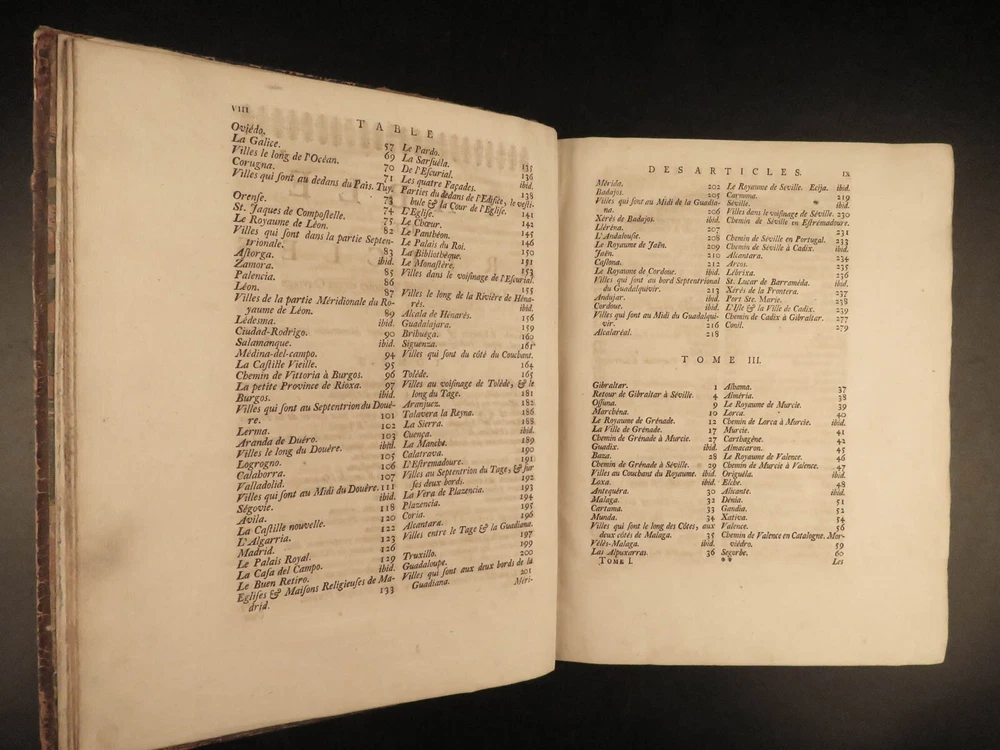 VIII
TABLE
Oviédo. 57
La Galice. 69
Villes le long de l'Océan. 70
Corugna. 71
Villes qui sont au dedans du Païs. Tuy. 73
Orense. 74
St. Jaques de Compostelle. 75
Le Royaume de Léon. 82
Villes qui sont dans la partie Septen-
trionale. 83
Astorga. ibid.
Zamora. 85
Palencia. 86
Léon. 87
Villes de la partie Méridionale du Ro-
yaume de Léon. 89
Lédesma. ibid.
Ciudad-Rodrigo. 90
Salamanque. ibid.
Médina-del-campo. 94
La Castille Vieille. 95
Chemin de Vittoria à Burgos. 96
La petite Province de Rioxa. 97
Burgos. ibid.
Villes qui sont au Septentrion du Douè-
re. 101
Lerma. 102
Aranda de Duéro. 103
Villes le long du Douère. ibid.
Logrogno. 105
Calahorra. 106
Valladolid. 107
Villes qui sont au Midi du Douère. 111
Ségovie. ibid.
Avila. 118
La Castille nouvelle. 120
L'Algarria. 122
Madrid. 123
Le Palais Royal. 126
La Casa del Campo. 129
Le Buen Retiro. ibid.
Eglises & Maisons Religieuses de Ma-
drid. 133
Le Pardo. 135
La Sarsuéla. 136
De l'Escurial. ibid.
Les quatre Façades. 138
Parties du dedans de l'Edifice, le vesti-
bule & la Cour de l'Eglise. 141
L'Eglise. 142
Le Chœur. 145
Le Panthéon. 146
Le Palais du Roi. 150
La Bibliothèque. 151
Le Monastère. 153
Villes dans le voisinage de l'Escurial.
155
Villes le long de la Rivière de Héna-
rés. ibid.
Alcala de Hénarés. 156
Guadalajara. 159
Brihuéga. 160
Siguenza. 161
Villes qui sont du côté du Couchant.
164
Tolède. 165
Villes au voisinage de Tolède, & le
long du Tage. 181
Aranjuez. 182
Talavera la Reyna. 186
La Sierra. 188
Cuença. ibid.
La Manche. 189
Calatrava. 190
L'Estremadoure. 191
Villes au Septentrion du Tage, & sur
ses deux bords. 192
La Vera de Plazencia. 193
Plazencia. 194
Coria. 195
Alcantara. 196
Villes entre le Tage & la Guadiana.
197
Truxillo. 199
Guadaloupe. 200
Villes qui sont aux deux bords de la
Guadiana. 201
Méri-
DES ARTICLES. IX
Mérida. 202
Badajos. 205
Villes qui sont au Midi de la Guadia-
na. 206
Xérès de Badajos. ibid.
Lléréna. 207
L'Andalousie. 208
Le Royaume de Jaën. 209
Jaën. 210
Castona. 212
Le Royaume de Cordoue. ibid.
Villes qui sont au bord Septentrional
du Guadalquivir. 213
Andujar. ibid.
Cordoue. ibid.
Villes qui sont au Midi du Guadalqui-
vir. 216
Alcalaréal. 218
Le Royaume de Seville. Ecija. ibid.
Carmona. 219
Séville. ibid.
Villes dans le voisinage de Séville. 230
Chemin de Séville en Estrémadoure.
231
Chemin de Séville en Portugal. 233
Chemin de Séville à Cadix. ibid.
Alcantara. 234
Arcos. 235
Lébrixa. 236
St. Lucar de Barraméda. ibid.
Xerès de la Frontera. 237
Port Ste. Marie. 238
L'Isle & la Ville de Cadix. 239
Chemin de Cadix à Gibraltar. 277
Conil. 279
TOME III.
Gibraltar. 1
Retour de Gibraltar à Séville. 4
Ossuna. 9
Marchéna. 10
Le Royaume de Grénade. 12
La Ville de Grénade. 17
Chemin de Grénade à Murcie. 27
Guadix. ibid.
Baza. 28
Chemin de Grénade à Séville. 29
Villes au Couchant du Royaume. ibid.
Loxa. ibid.
Antequéra. 30
Malaga. 32
Cartama. 33
Munda. 34
Villes qui sont le long des Côtes, aux
deux côtez de Malaga. 35
Vélès-Malaga. ibid.
Las Alpuxarras. 36
Alhama. 37
Alméria. 38
Le Royaume de Murcie. 39
Lorca. 40
Chemin de Lorca à Murcie. ibid.
Murcie. 41
Carthagène. 42
Almacaron. 45
Le Royaume de Valence. 46
Chemin de Murcie à Valence. 47
Origuéla. ibid.
Elche. 48
Alicante. ibid.
Dénia. 51
Gandia. 52
Xativa. 54
Valence. 56
Chemin de Valence en Catalogne. Mor-
viédro. 59
Segorbe. 60
TOME I. ** Les